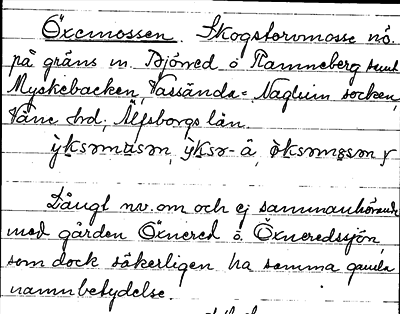 Öxemossen. Skogstorvmosse nö.
på gräns m. Björred o Ramneberg samt
Myskebacken, Vassända-Naglum socken,
Väne hd, Älfsborgs län.
Långt nv. om och ej sammanhörande
med gården Öxnered o. Öxneredssjön,
som dock säkerligen ha samma gamla
namnbetydelse.